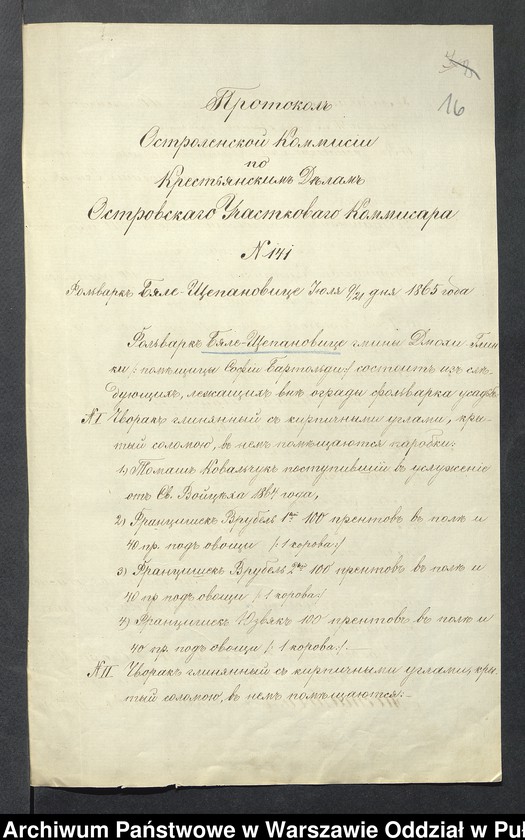 16
Протоколъ
Остроленской Коммисіи
по
Крестьянскимъ Дѣламъ
Островскаго Участковаго Коммисара
N 141
Фольваркъ Бяле-Щепановице Іюля 9/21 дня 1865 года
Фольваркъ Бяле-Щепановице гмины Дмохи-Глин-
ки /: помѣщицы Софіи Бартольди :/ состоитъ изъ слѣ-
дующихъ, лежащихъ внѣ ограды фольварка усадьбъ
N I Чворакъ глинянный съ кирпичными углами, кры-
тый соломою, въ немъ помѣщаются паробки:
1) Томашъ Ковальчукъ поступившій въ услуженіе
отъ Св. Войцѣха 1864 года,
2) Францишекъ Врубель 1й 100 прентовъ въ поли и
40 пр. подъ овощи /: 1 корова :/
3) Францишекъ Врубель 2й 100 прентовъ въ поли и
40 пр подъ овощи /: 1 корова :/
4) Францишекъ Юзвякъ 100 прентовъ въ поли и
40 пр. подъ овощи /: 1 корова :/. —
N II Чворакъ глинянный съ кирпичными углами, кры-
тый соломою, въ немъ помѣщаются: —
Archiwum Państwowe w Warszawie Oddział w Pu